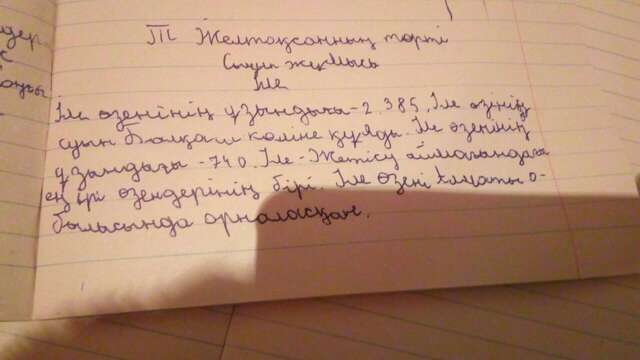 дер
III Желтоқсанның төрті
Сынып жұмысы
Іле
Іле өзенінің ұзындығы-2.385. Іле өзінің
суын Балқаш көліне құяды. Іле өзенінің
ұзындығы -740. Іле-Жетісу аймағындағы
ең ірі өзендерінің бірі. Іле өзені Алматы о-
былысында орналасқан.